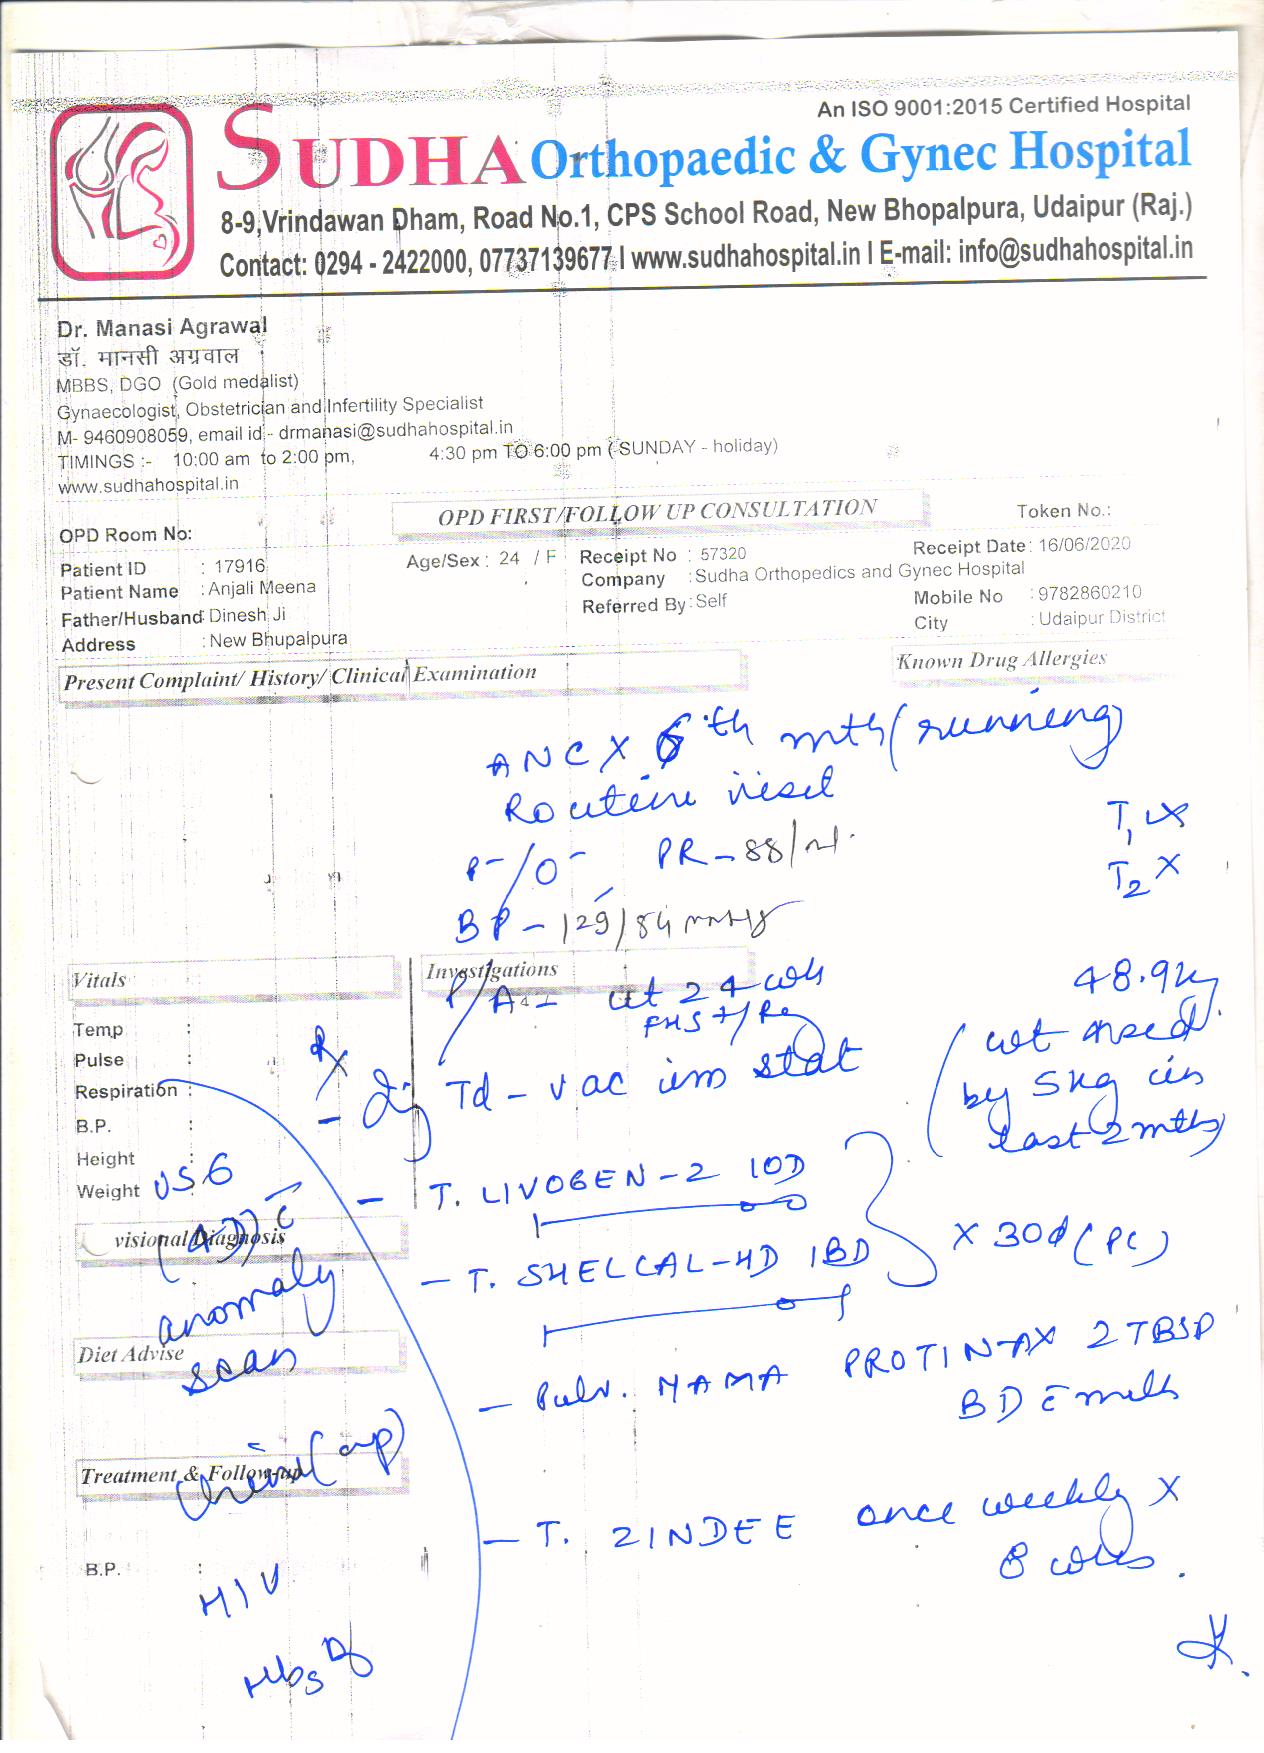 An ISO 9001:2015 Certified Hospital
SUDHA Orthopaedic & Gynec Hospital
8-9,Vrindawan Dham, Road No.1, CPS School Road, New Bhopalpura, Udaipur (Raj.)
Contact: 0294 - 2422000, 07737139677 I www.sudhahospital.in I E-mail: info@sudhahospital.in
Dr. Manasi Agrawal
डॉ. मानसी अग्रवाल
MBBS, DGO (Gold medalist)
Gynaecologist, Obstetrician and Infertility Specialist
M- 9460908059, email id - drmanasi@sudhahospital.in
TIMINGS :- 10:00 am to 2:00 pm, 4:30 pm TO 6:00 pm ( SUNDAY - holiday)
www.sudhahospital.in
OPD FIRST/FOLLOW UP CONSULTATION
Token No.:
OPD Room No:
Patient ID : 17916 Age/Sex : 24 / F Receipt No : 57320 Receipt Date : 16/06/2020
Patient Name : Anjali Meena Company : Sudha Orthopedics and Gynec Hospital
Father/Husband : Dinesh Ji Referred By : Self Mobile No : 9782860210
Address : New Bhupalpura City : Udaipur District
Present Complaint/ History/ Clinical Examination
Known Drug Allergies
ANC X 6th mth (running
Routine visit
P-/O- PR - 88/
T1
T2 X
BP - 129/84 mmHg
Vitals
Investigations
P/A - ut 24 wks
FHS +/Reg
48.9kg
(wt ased
by 5kg in
last 2 mths)
Temp :
Pulse :
Respiration :
B.P. :
Height :
Weight :
Rx
- Inj Td - vac im stat
- T. LIVOGEN-Z 1OD
- T. SHELCAL-HD 1BD
X 30d (PC)
- Pulv. MAMA PROTINAX 2 TBSP
BD c̄ milk
- T. ZINDEE once weekly X
8 wks.
USG
(4D) c̄
visional Diagnosis
anomaly
scan
Diet Advise
Treatment & Follow-up
Urine (
B.P. :
HIV
HbsAg